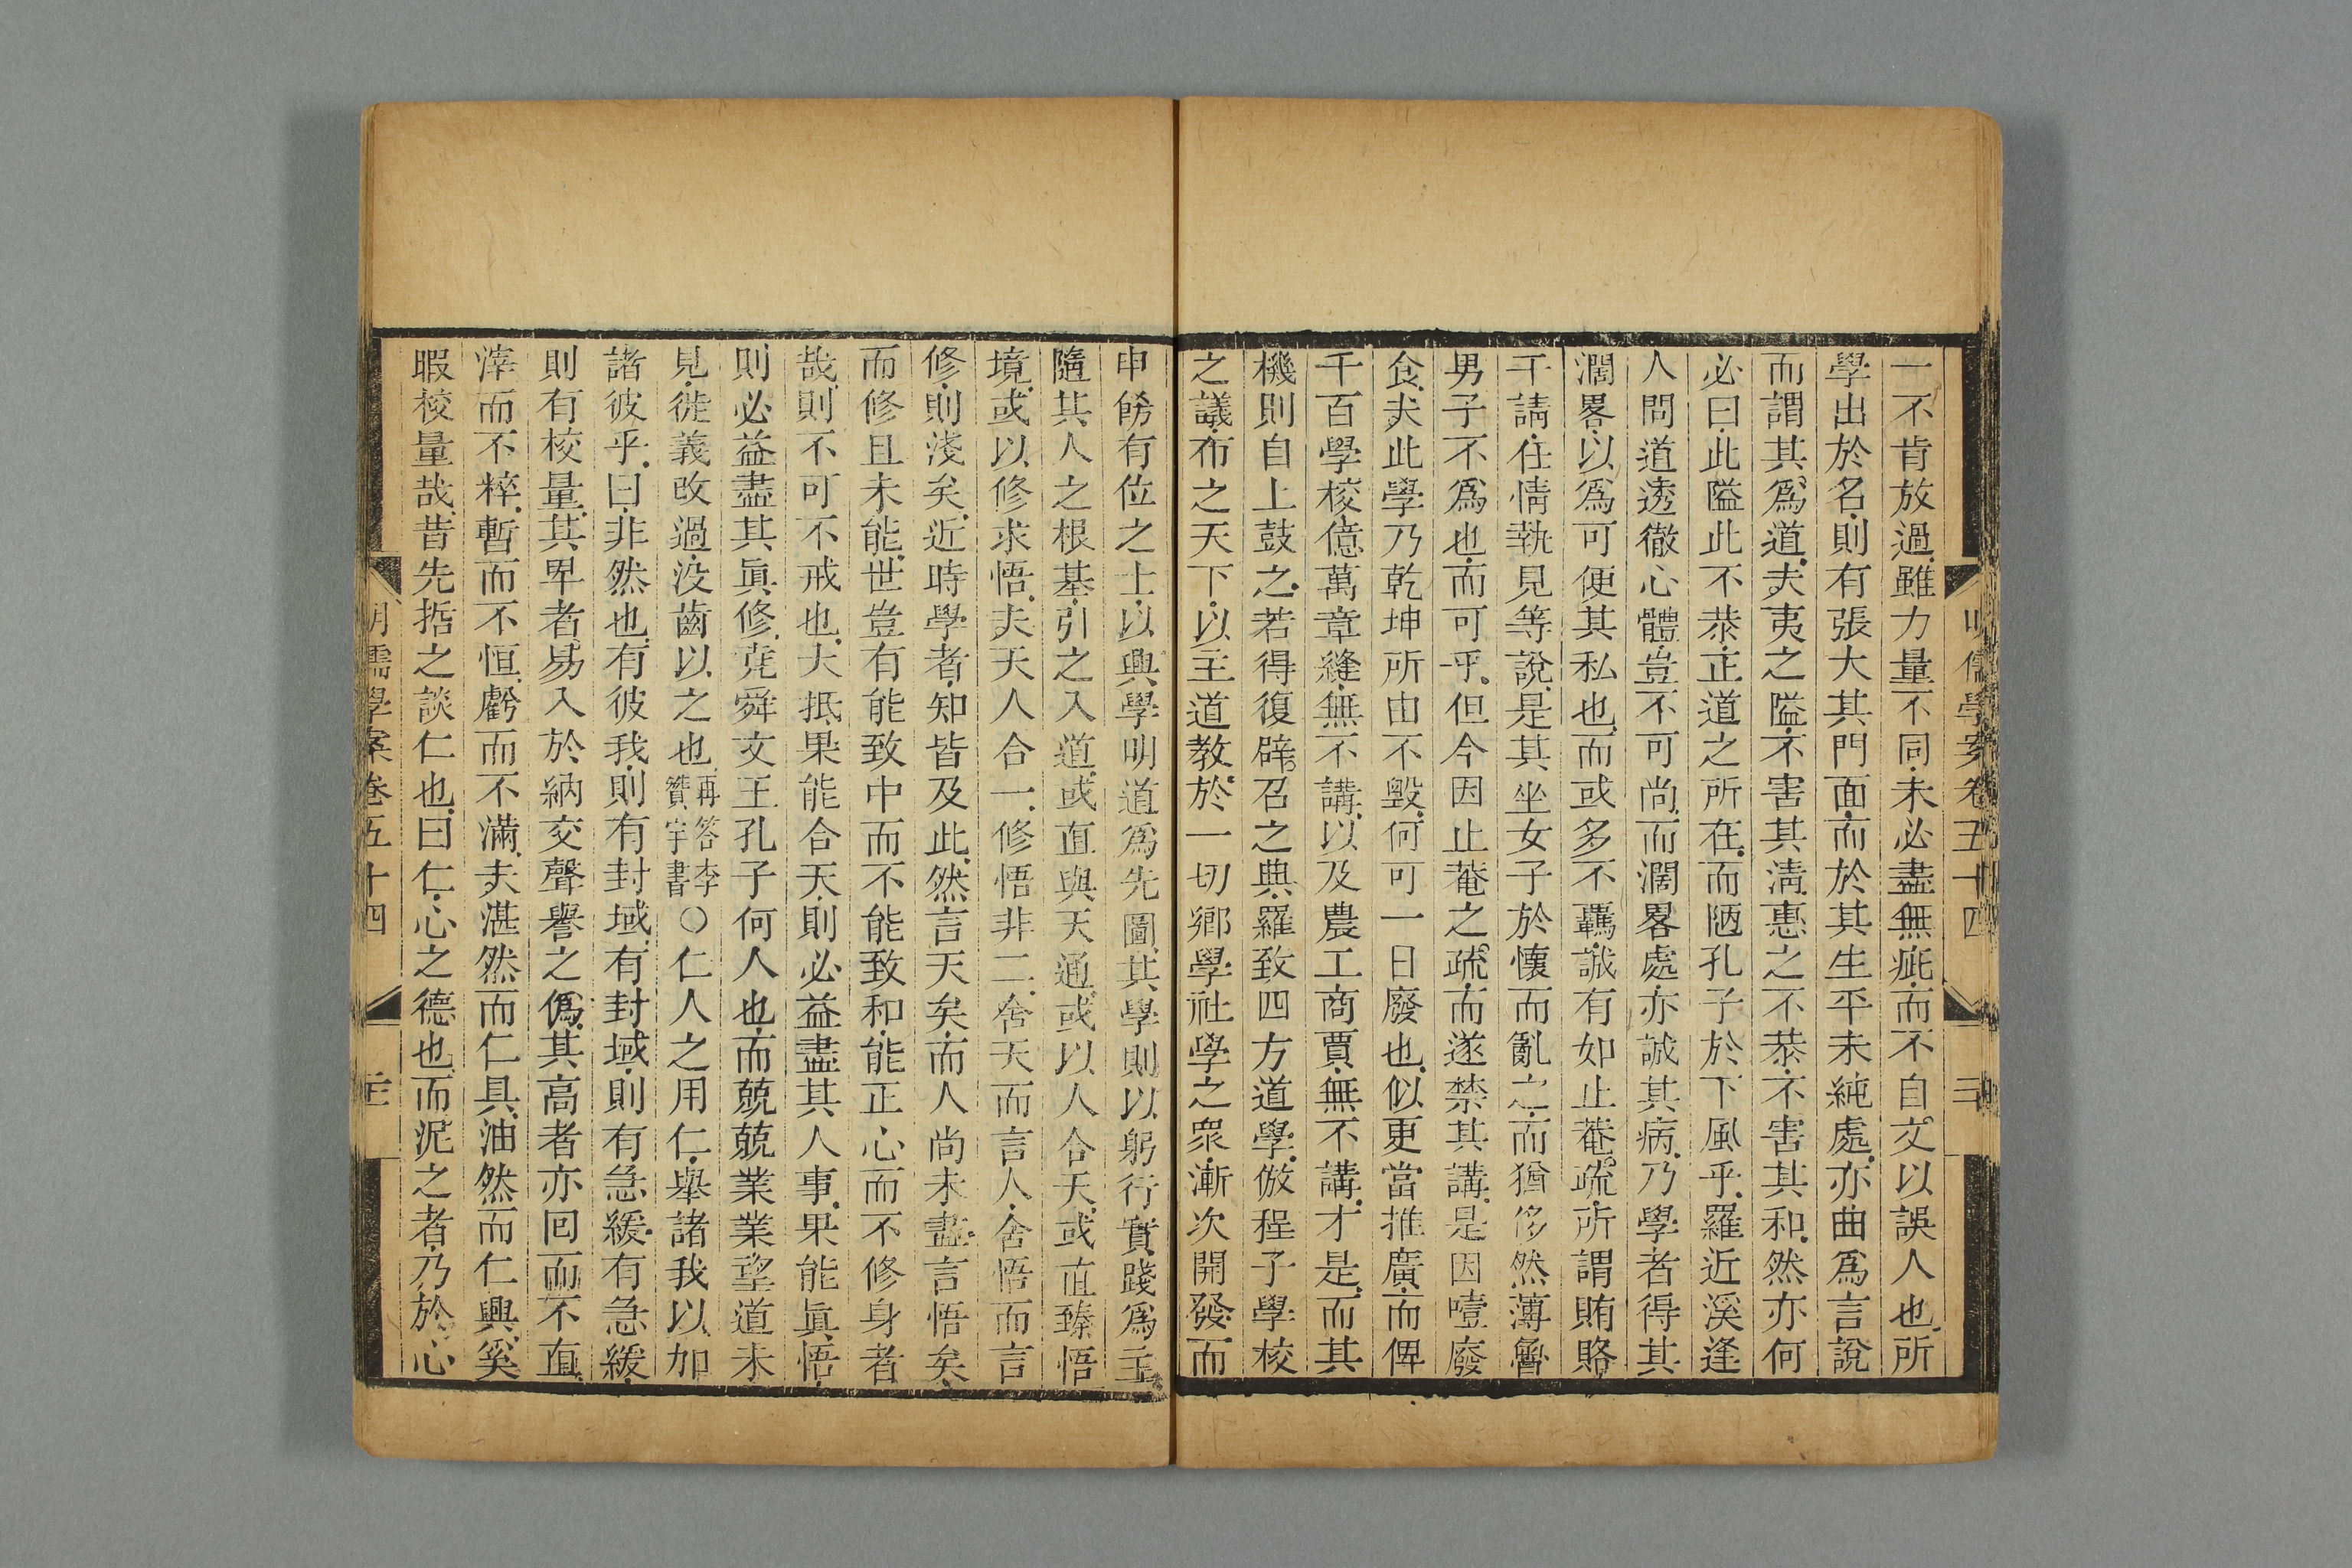 一不肯放過雖力量不同未必盡無疵而不自文以誤人也所
學出於名則有張大其門面而於其生平未純處亦曲爲言說
而謂其爲道夫夷之隘不害其淸惠之不恭不害其和然亦何
必曰此隘此不恭正道之所在而陋孔子於下風乎羅近溪逢
人問道透徹心體豈不可尚而濶畧處亦誠其病乃學者得其
濶畧以爲可便其私也而或多不羈誠有如止菴疏所謂賄賂
干請任情執見等說是其坐女子於懷而亂之而猶侈然薄魯
男子不爲也而可乎但今因止菴之疏而遂禁其講是因噎廢
食夫此學乃乾坤所由不毀何可一日廢也似更當推廣而俾
千百學校億萬章縫無不講以及農工商賈無不講才是而其
機則自上鼓之若得復辟召之典羅致四方道學倣程子學校
之議布之天下以主道教於一切鄉學社學之眾漸次開發而
申飭有位之士以興學明道爲先圖其學則以躬行實踐爲主
隨其人之根基引之入道或直與天通或以人合天或直臻悟
境或以修求悟夫天人合一修悟非二舍天而言人舍悟而言
修則淺矣近時學者知皆及此然言天矣而人尚未盡言悟矣
而修且未能世豈有能致中而不能致和能正心而不修身者
哉則不可不戒也大抵果能合天則必益盡其人事果能眞悟
則必益盡其眞修堯舜文王孔子何人也而兢兢業業望道未
見徙義改過沒齒以之也再答李贊宇書〇仁人之用仁舉諸我以加
諸彼乎曰非然也有彼我則有封域有封域則有急緩有急緩
則有校量其卑者易入於納交聲譽之僞其高者亦囘而不直
滓而不粹暫而不恒虧而不滿夫湛然而仁具油然而仁興奚
暇校量哉昔先哲之談仁也曰仁心之德也而泥之者乃於心
明儒學案卷五十四